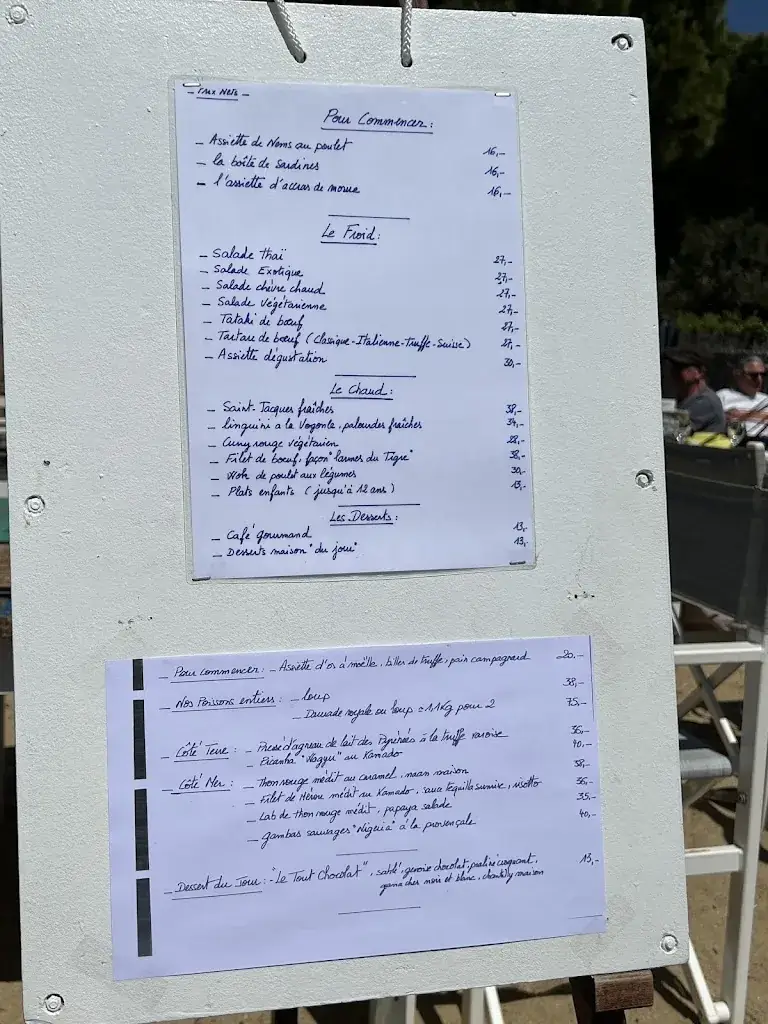 - Prix Nets -
Pour Commencer :
- Assiette de Nems au poulet 16,-
- la boîte de Sardines 16,-
- l'assiette d'accras de morue 16,-
Le Froid :
- Salade thaï 27,-
- Salade Exotique 27,-
- Salade chèvre chaud 27,-
- Salade Végétarienne 27,-
- Tataki de bœuf 27,-
- Tartare de bœuf (Classique-Italienne-Truffe-Suisse) 27,-
- Assiette dégustation 30,-
Le Chaud :
- Saint-Jacques fraîches 38,-
- linguini a la Vongole, palourdes fraîches 34,-
- Curry rouge végétarien 28,-
- Filet de bœuf, façon "larmes du Tigre" 38,-
- Wok de poulet aux légumes 30,-
- Plats enfants (jusqu'à 12 ans) 13,-
Les Desserts :
- Café gourmand 13,-
- Desserts maison "du jour" 13,-
- Pour Commencer : - Assiette d'os à moëlle, billes de truffe, pain campagnard 20.-
- Nos Poissons entiers : - loup 38,-
- Daurade royale ou loup 1.1Kg pour 2 75,-
- Côté Terre : - Pressé d'agneau de lait des Pyrénées à la truffe 36,-
- Picanha "Wagyu" au Kamado 40,-
- Côté Mer : - Thon rouge médit au caramel, naan maison 38,-
- Filet de médit au Kamado, sauce tequilla sunrise, risotto 36,-
- Lab de thon rouge médit, papaya salade 35,-
- gambas sauvages "Nigeria" à la provençale 40,-
- Dessert du Jour : - "Le Tout Chocolat", sablé, genoise chocolat, praliné croquant, 13,-
ganache noir et blanc, chantilly maison